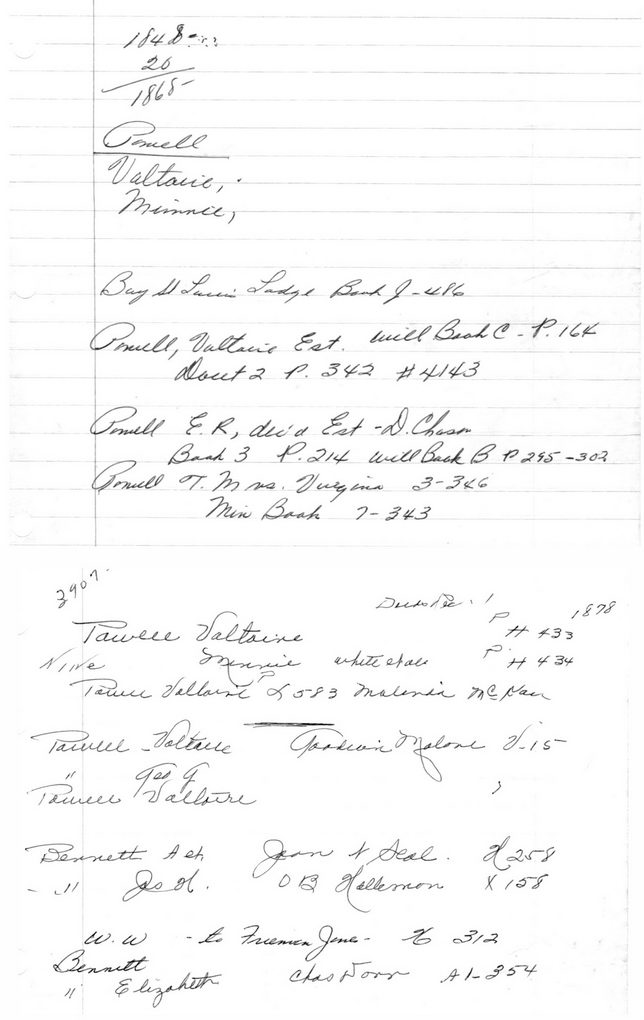 1848
20
1868
Powell
Valtaire,
Minnie,
Bay St Louis Lodge Book J-486
Powell, Valtaire Est. will Book C - P. 164
P. 342 #4143
Powell E.R, dec'd Est - D.
Book 3 P. 214 will Book B P 295-302
Powell T. M mrs. Virginia 3-346
Min Book 7-343
3907.
1878
Powell Valtaire P H 433
Minnie P. H 434
Powell Valtaire P L 583 Malinda
Powell - Voltaire Goodwin Malone V-15
" Geo G
Powell Valtaire
Bennett Jean N Seal. H 258
- " Jas H. O B X 158
W. W - to Freeman Jones - 312
Bennett
" Elizabeth Chas A1-354